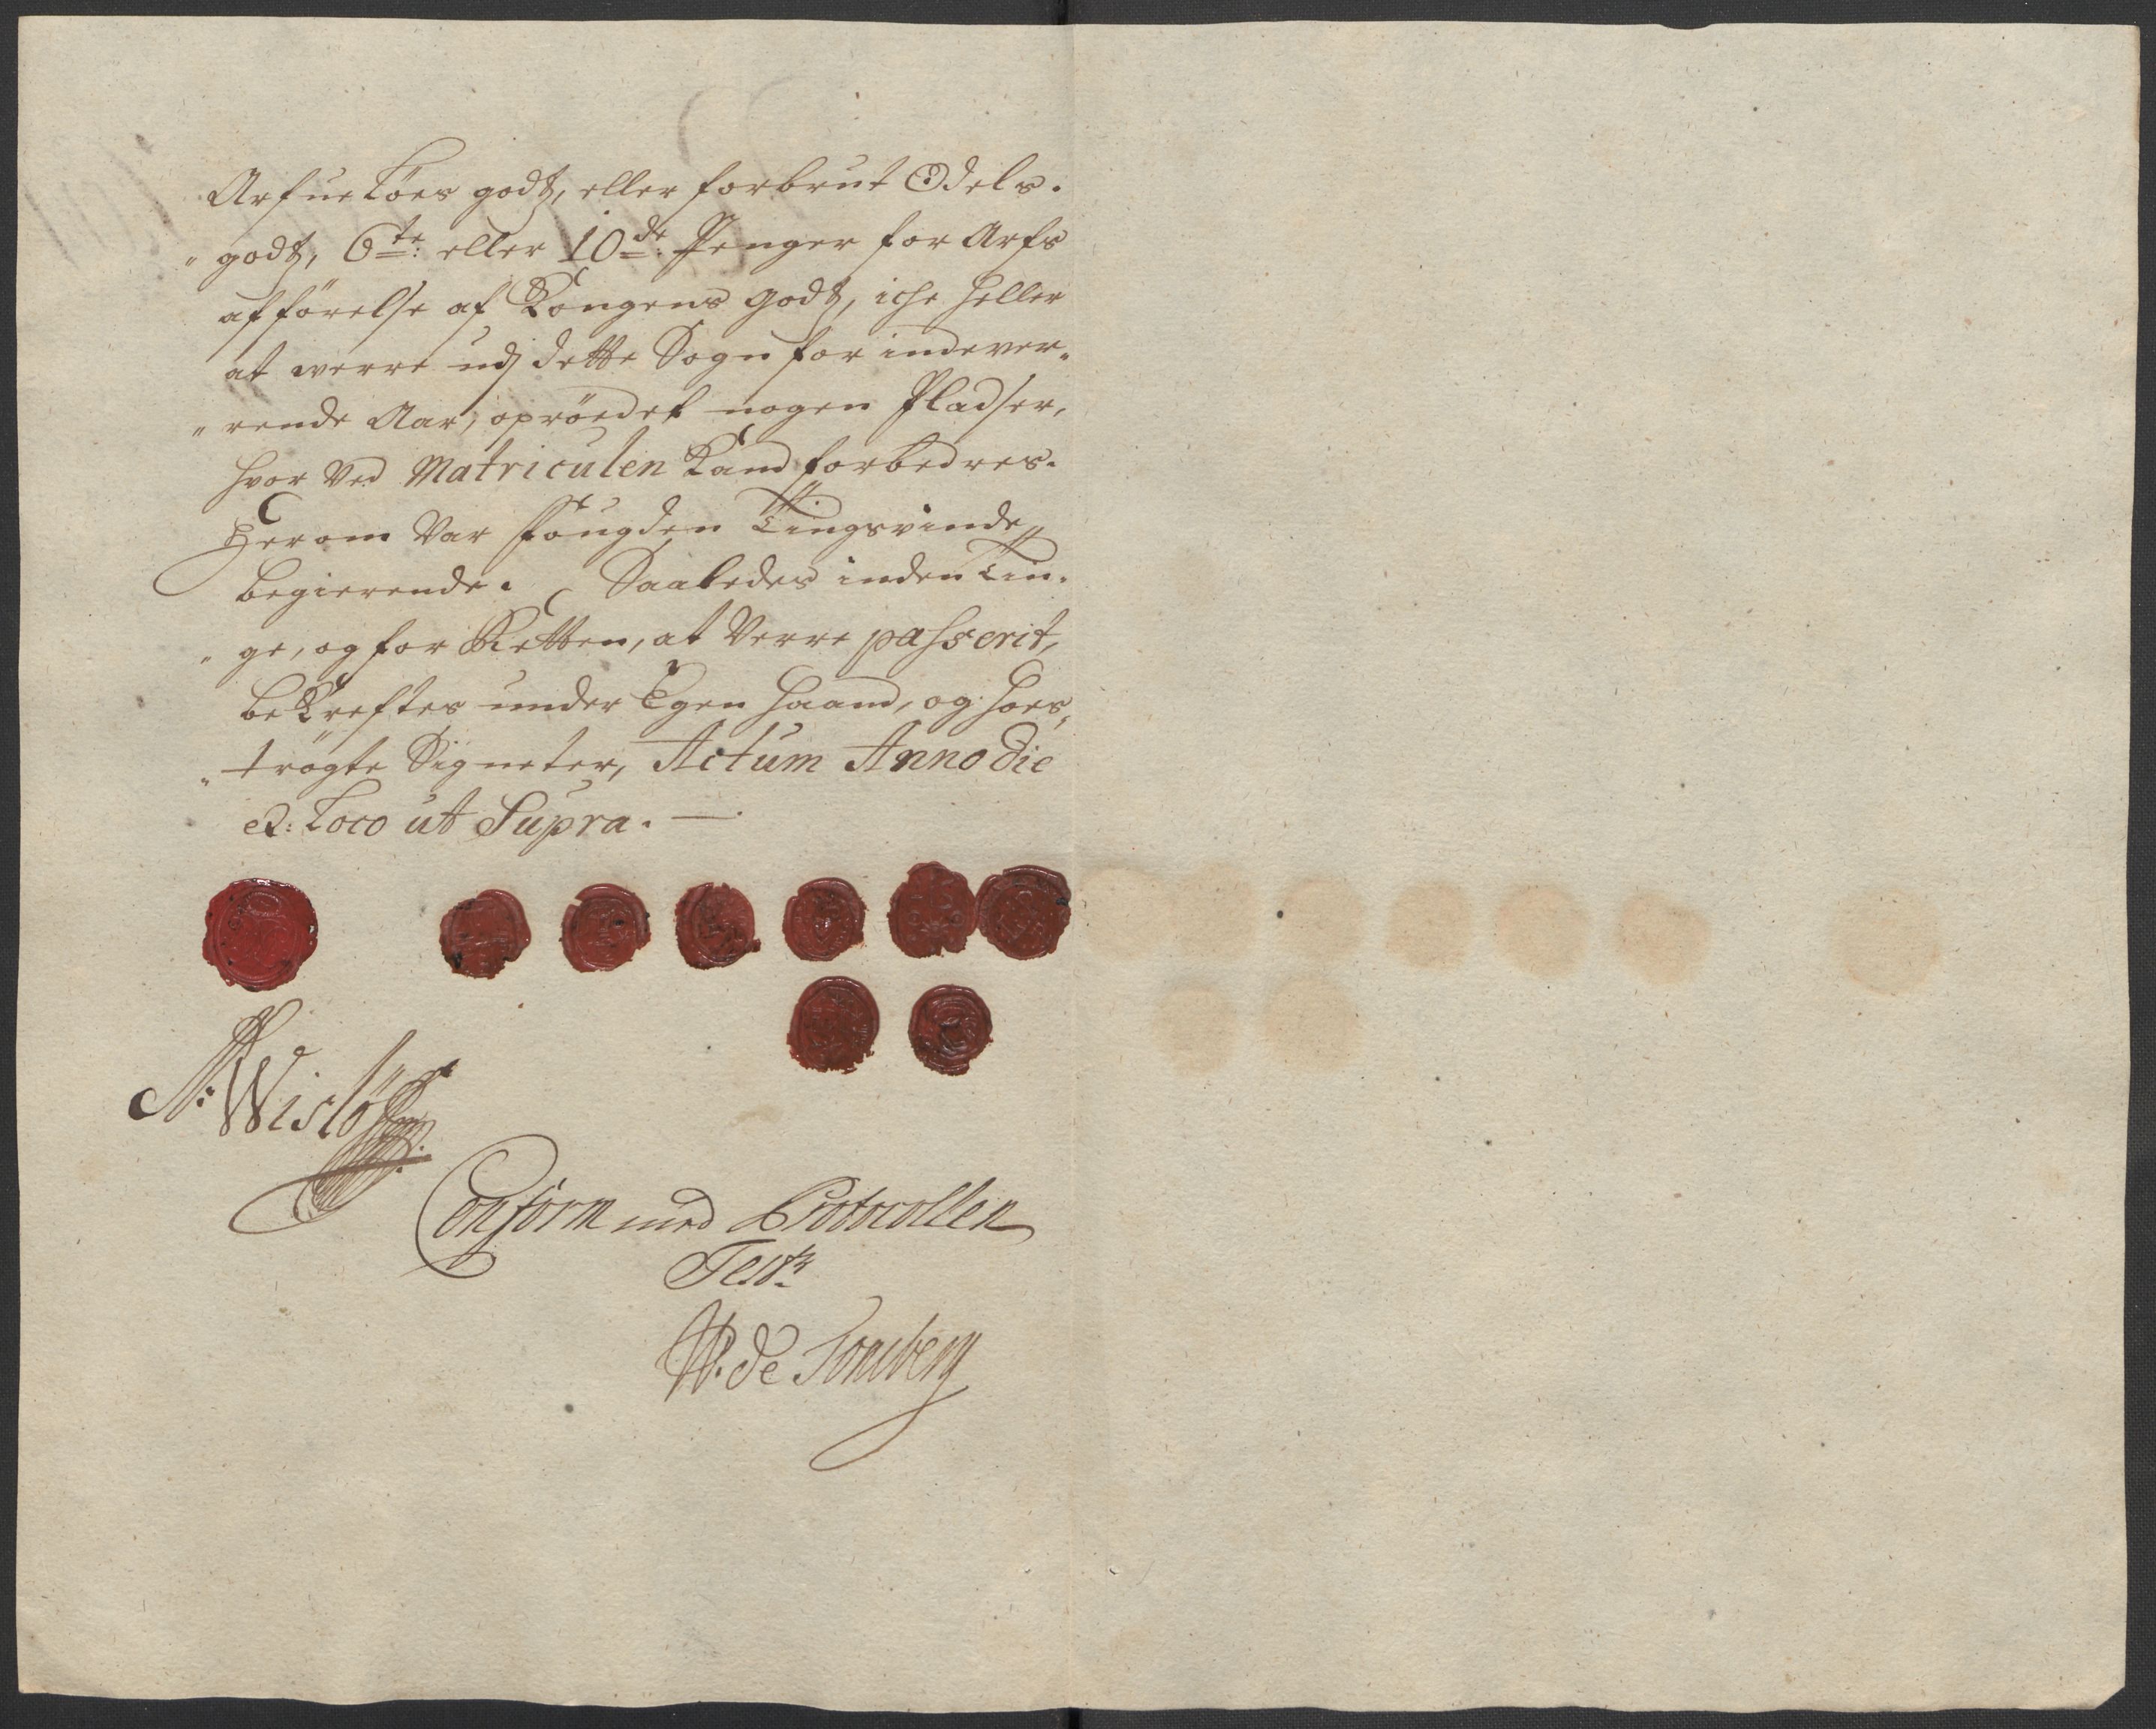 Arfue Löes godtz, eller forbrut Odels.
„ godtz, 6te: eller 10de: Penger for Arfs
afförelse af Kongens godtz, iche heller
at werre udj dette Sogn for indever„
„ rende Aar, oprÿdet nogen Pladser,
hvor ved Matriculen Kand forbedres.
Herom var fougden Tingsvinde
begierende. Saaledes inden Tin.
„ ge, og for Retten, at verre passerit,
beKreftes under Egen haand, og hoes„
„ trögte Signeter, Actum Anno die
et: Loco ut Supra. —
A: Wislöff
Conform med Protocollen
Test:
W. de Tonsberg